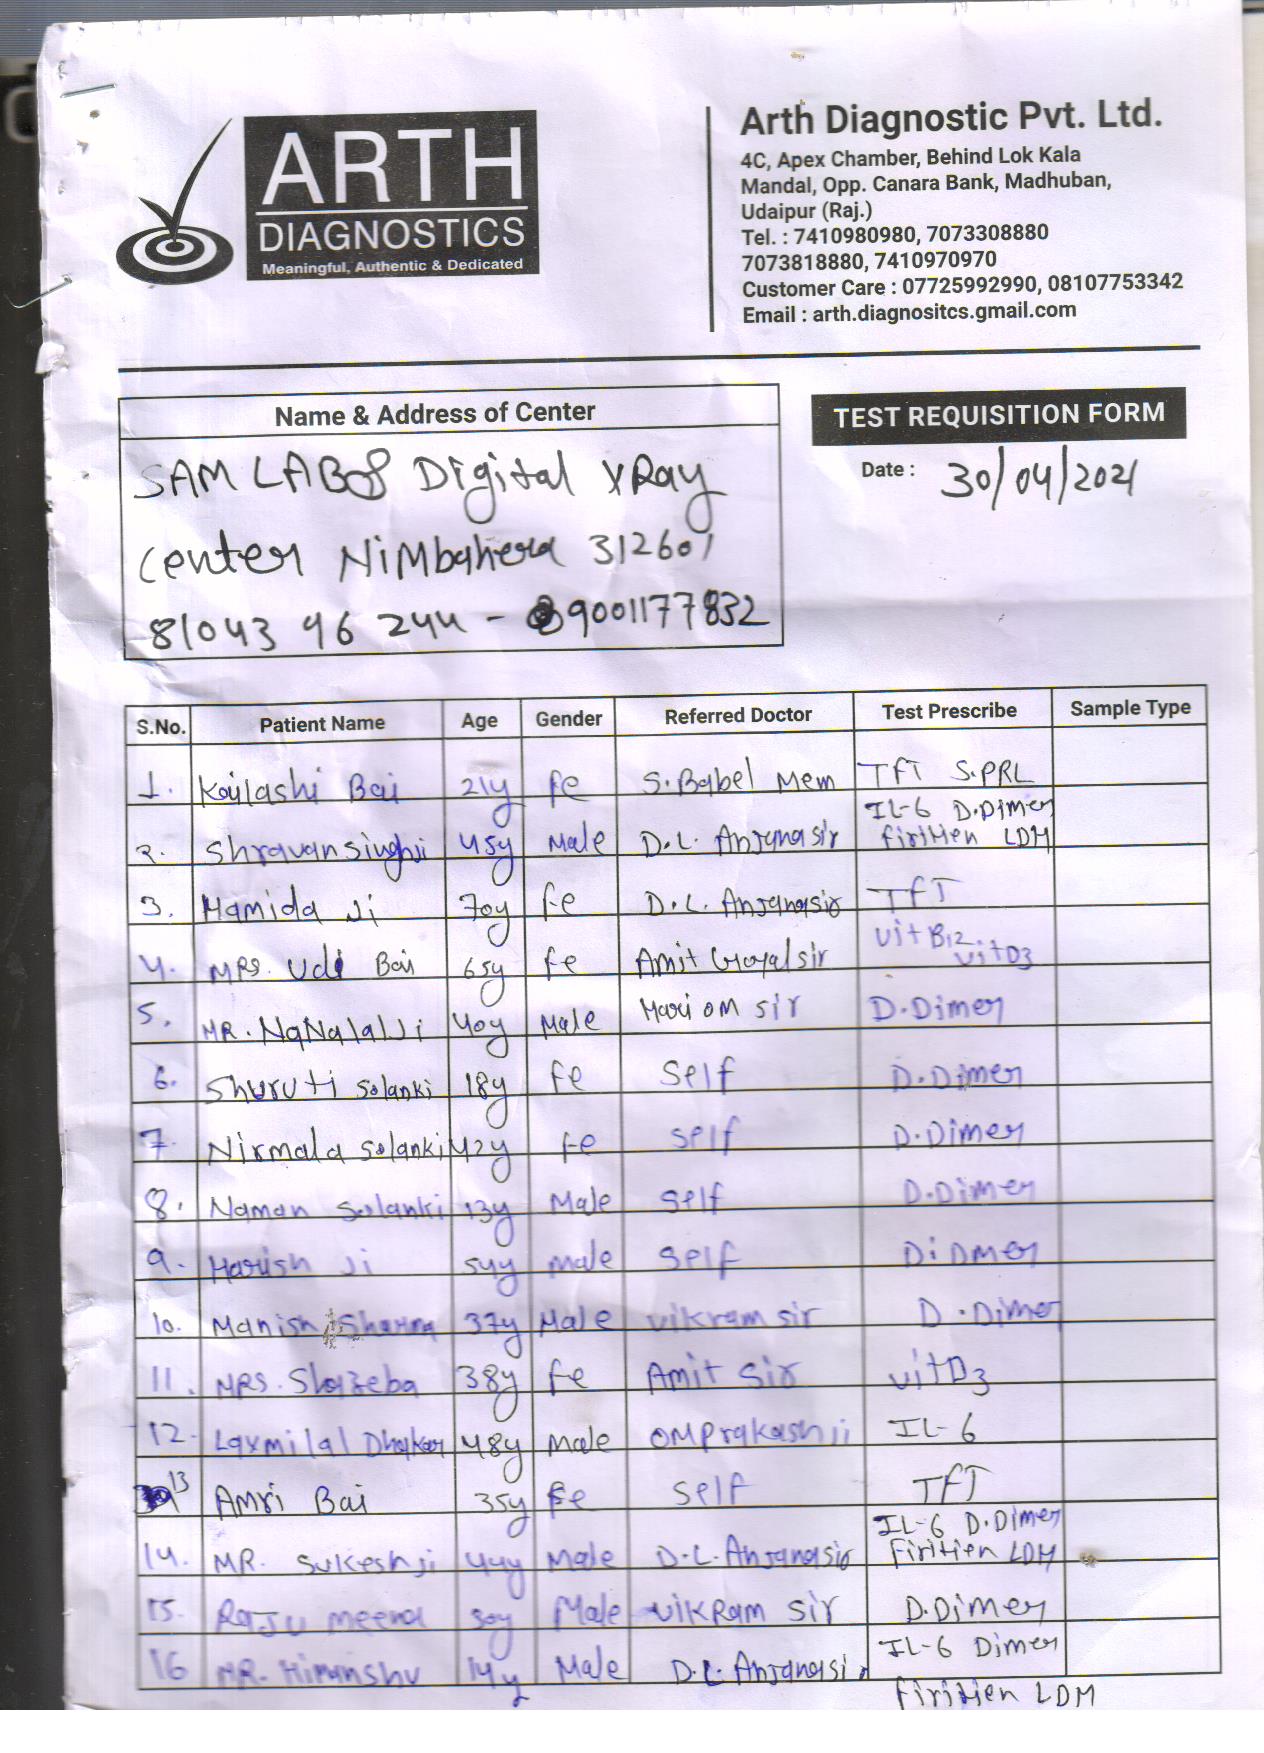 ARTH
DIAGNOSTICS
Meaningful, Authentic & Dedicated
Arth Diagnostic Pvt. Ltd.
4C, Apex Chamber, Behind Lok Kala
Mandal, Opp. Canara Bank, Madhuban,
Udaipur (Raj.)
Tel. : 7410980980, 7073308880
7073818880, 7410970970
Customer Care : 07725992990, 08107753342
Email : arth.diagnositcs.gmail.com
Name & Address of Center
SAM LAB & Digital XRay
Center NiMbahera 312601
81043 96 244 - 9001177832
TEST REQUISITION FORM
Date : 30/04/2021
S.No. Patient Name Age Gender Referred Doctor Test Prescribe Sample Type
1. Kailashi Bai 21y fe S. Babel Mem TFT S.PRL
2. Shravan Singhji 45y Male D.L. Anjana sir IL-6 D.Dimer
firitien LDM
3. Hamida Ji 70y fe D.L. Anjana sir TFT
4. MRS. Udi Bai 65y fe Amit Goyal sir vit B12
vitD3
5. MR. NaNalalJi 40y Male Hari OM sir D.Dimer
6. Shuruti solanki 18y fe Self D.Dimer
7. Nirmala solanki 42y fe self D.Dimer
8. Naman solanki 13y Male self D.Dimer
9. Harish Ji 54y Male self DiDmer
10. Manish Sharma 37y Male vikram sir D.Dimer
11. MRS. Shazeba 38y fe Amit Sir vitD3
12. Laxmilal Dhakar 48y Male OMPrakashji IL-6
13 Amri Bai 35y fe self TFT
14. MR. Sukeshji 44y Male D.L. Anjana sir IL-6 D.Dimer
firitien LDM
15. RaJU meena 30y Male vikRam sir D.Dimer
16 MR. Himanshu 14y Male D.L. Anjana sir IL-6 Dimer
firitien LDM